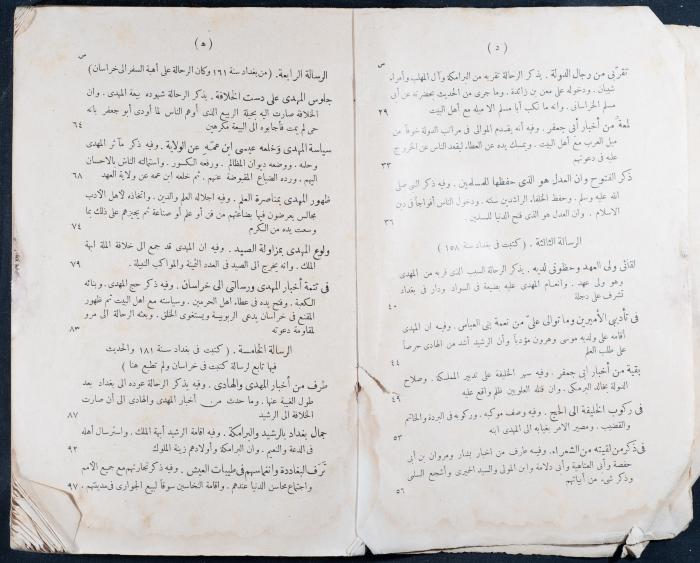 ( د )
ص
تقرّبى من رجال الدولة . يذكر الرحالة تقربه من البرامكة وآل المهلب وأمراء
شيبان . ودخوله على معن بن زائدة . وما جرى من الحديث بحضرته عن أبى
مسلم الخراسانى . وانه ما نكب أبا مسلم الا ميله مع أهل البيت ٢٩
لمعة من أخبار أبى جعفر . وفيه أنه يقدم الموالى فى مراتب الدولة خوفاً من
ميل العرب مع أهل البيت . ويمسك يده عن العطاء ليقعد الناس عن الخروج
عليه فى دعوتهم ٣٣
ذكر الفتوح وان العدل هو الذى حفظها للمسلمين . وفيه ذكر النبى صلى
الله عليه وسلم . وحفظ الخلفاء الراشدين سنته . ودخول الناس أفواجاً فى دين
الاسلام . وان العدل هو الذى فتح الدنيا للمسلمين . ٣٦
الرسالة الثالثة . ( كتبت فى بغداد سنة ١٥٨ )
لقائى ولى العهد وحظوتى لديه . يذكر الرحالة السبب الذى قربه من المهدى
وهو ولى عهد . وانعام المهدى عليه بضيعة فى السواد ودار فى بغداد
تشرف على دجلة ٤٠
فى تأديبى الأميرين وما توالى علىّ من نعمة بنى العباس . وفيه ان المهدى
أقامه على ولديه موسى وهرون مؤدباً وأن الرشيد أشد من الهادى حرصاً
على طلب العلم ٤٤
بقية من أخبار أبى جعفر . وفيه سهر الخليفة على تدبير المملكة . وصلاح
الدولة بخالد البرمكى . وان قتله العلويين ظلم واقع عليه ٤٩
فى ركوب الخليفة الى الحج . وفيه وصف موكبه . وركوبه فى البردة والخاتم
والقضيب . ومصير الامر بغيابه الى المهدى ابنه ٥٣
فى ذكر من لقيته من الشعراء . وفيه معارف من اخبار بشار ومروان بن أبى
حفصة وأبى العتاهية وأبى دلامة وابن المولى والسيد الحميرى وأشجع السلمى
وذكر شىء من أبياتهم ٥٦
( ه )
ص
الرسالة الرابعة . ( من بغداد سنة ١٦١ وكان الرحالة على أهبة السفر الى خراسان )
جلوس المهدى على دست الخلافة . يذكر الرحالة شهوده بيعة المهدى . وان
الخلافة صارت اليه بحيلة الربيع الذى أوهم الناس لما أودى أبو جعفر بانه
حى لم يمت فأجابوه الى البيعة مكرهين ٦٤
سياسة المهدى وخلعه عيسى ابن عمّه عن الولاية . وفيه ذكر مآثر المهدى
وحلمه . ووضعه ديوان المظالم . ورفعه الكسور . واستمالته الناس بالاحسان
اليهم . ورده الضياع المقبوضة عنهم . ثم خلعه ابن عمه عن ولاية العهد ٦٨
ظهور المهدى بمناصرة العلم . وفيه اجلاله العلم والدين . واتخاذه لاهل الادب
مجالس يعرضون فيها بضاعتهم من فن أو علم أو صناعة ثم يجيزهم على ذلك بما
وسعت يده من الكرم ٧٤
ولوع المهدى بمزاولة الصيد . وفيه ان المهدى قد جمع الى خلافة الملة ابهة
الملك . وانه يخرج الى الصيد فى العدد الثمينة والمواكب النبيلة . ٧٩
فى تتمة أخبار المهدى ورسالتى الى خراسان . وفيه ذكر حج المهدى . وبنائه
الكعبة . وفتح يده فى عطاء اهل الحرمين . وسياسته مع اهل البيت ثم ظهور
المقنع فى خراسان يدعى الربوبية ويستغوى الخلق . وبعثه الرحالة الى مرو
لمقاومة دعوته ٨٣
الرسالة الخامسة . ( كتبت فى بغداد سنة ١٨١ والحديث
فيها تابع لرسالة كتبت فى خراسان ولم تطبع هنا )
طرف من أخبار المهدى والهادى . وفيه يذكر الرحالة عوده الى بغداد بعد
طول الغيبة عنها . وما حدث من أخبار المهدى والهادى الى أن صارت
الخلافة الى الرشيد ٨٧
جمال بغداد بالرشيد والبرامكة . وفيه اقامة الرشيد أبهة الملك . واسترسال أهله
فى الدعة والنعيم . وان البرامكة وأولادهم زينة الملوك ٩٢
ترف البغاددة وانغماسهم فى طيبات العيش . وفيه ذكر تجارتهم مع جميع الامم
واجتماع محاسن الدنيا عندهم . واقامة النخاسين سوقاً لبيع الجوارى فى مدينتهم . ٩٧